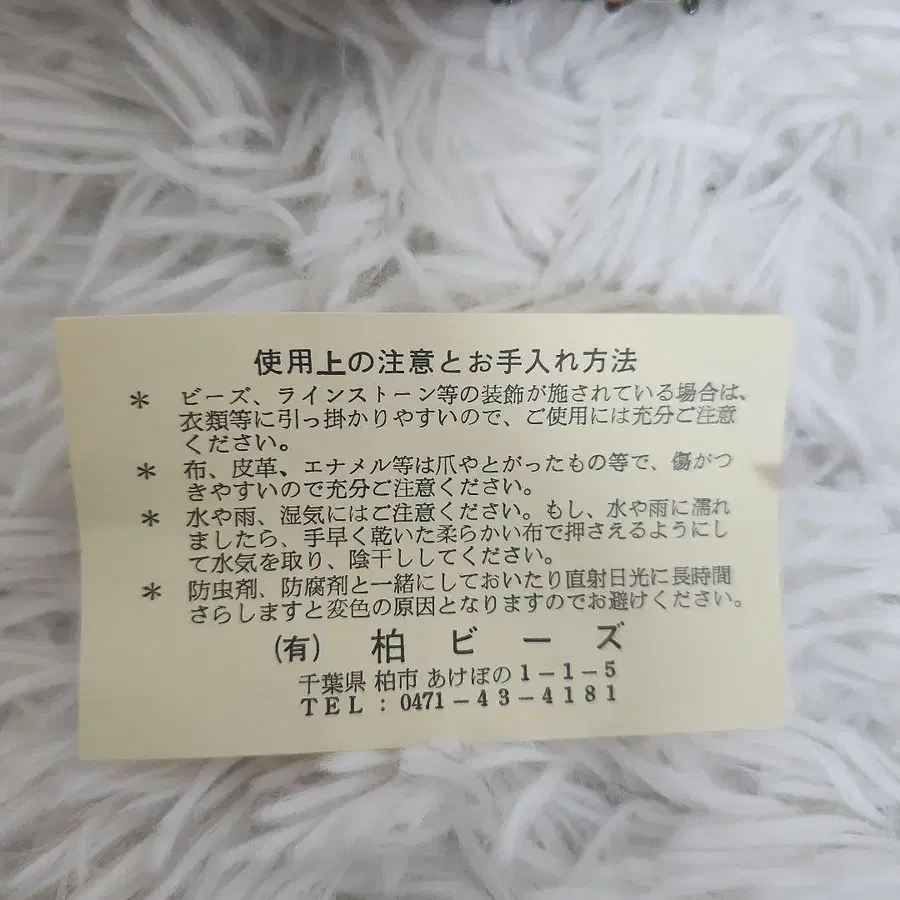 使用上の注意とお手入れ方法
＊ ビーズ、ラインストーン等の装飾が施されている場合は、
衣類等に引っ掛かりやすいので、ご使用には充分ご注意
ください。
＊ 布、皮革、エナメル等は爪やとがったもの等で、傷がつ
きやすいので充分ご注意ください。
＊ 水や雨、湿気にはご注意ください。もし、水や雨に濡れ
ましたら、手早く乾いた柔らかい布で押さえるようにし
て水気を取り、陰干ししてください。
＊ 防虫剤、防腐剤と一緒にしておいたり直射日光に長時間
さらしますと変色の原因となりますのでお避けください。
(有) 柏ビーズ
千葉県 柏市 あけぼの1－1－5
TEL：0471－43－4181